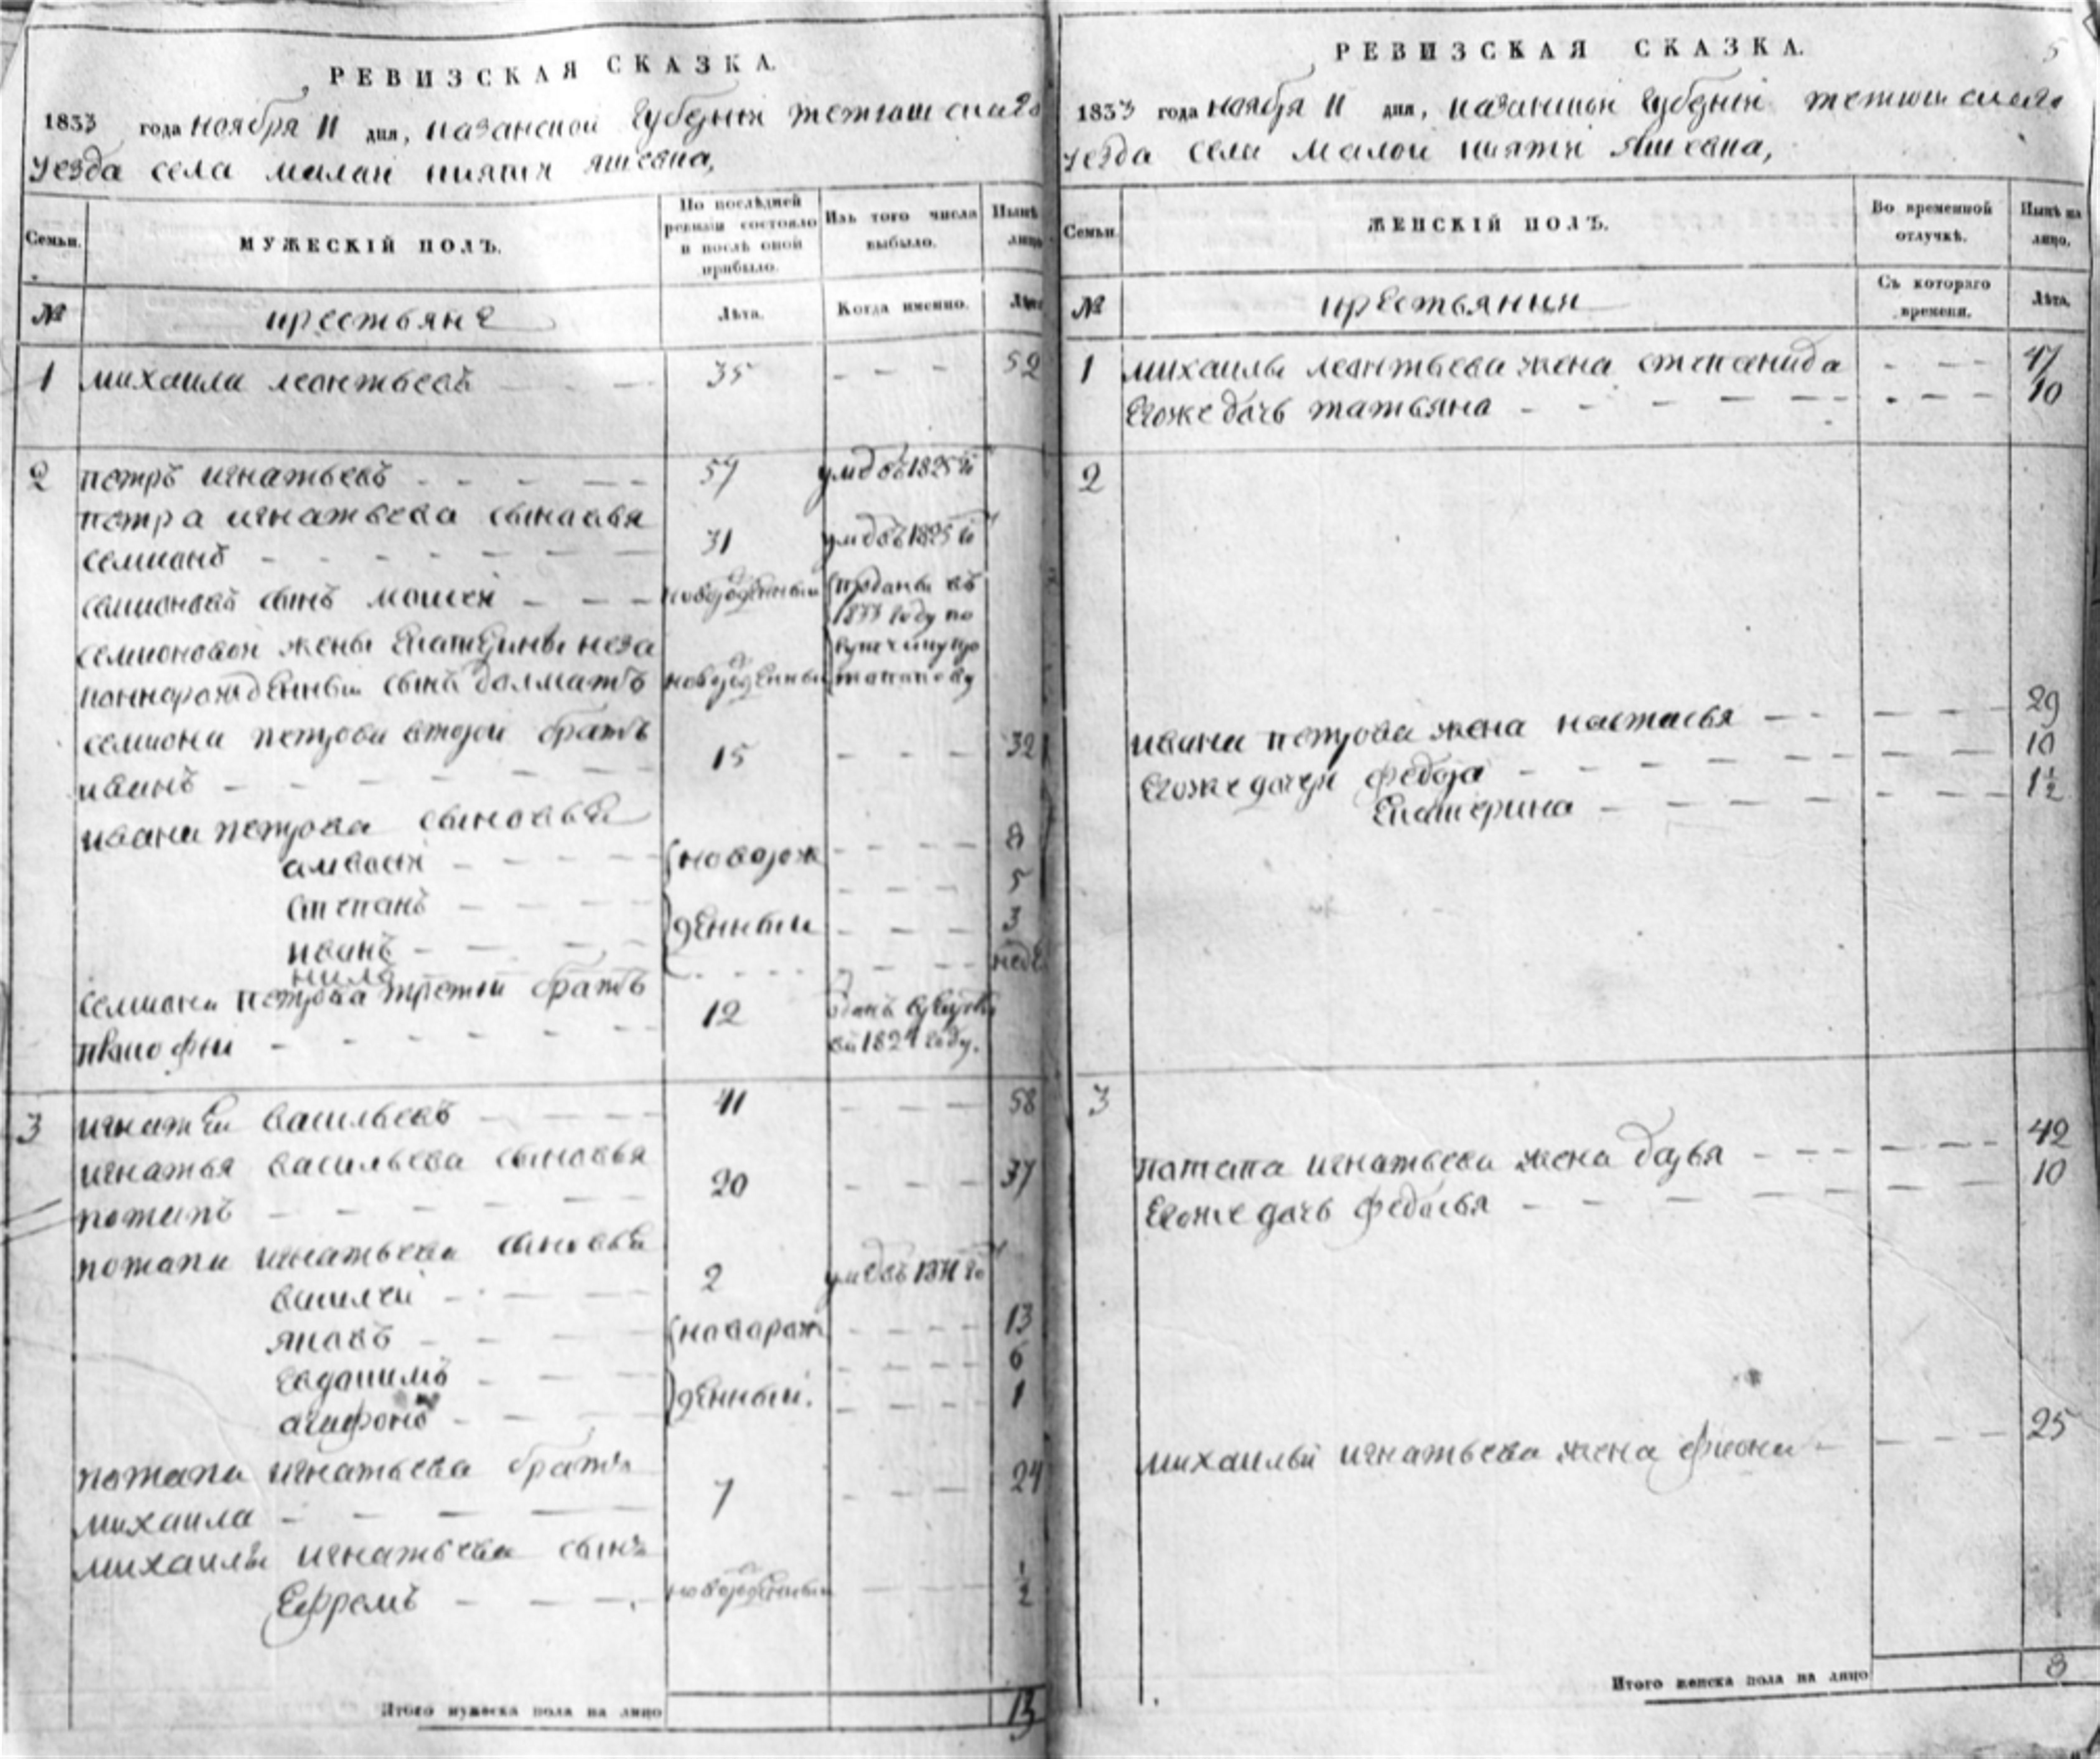 РЕВИЗСКАЯ СКАЗКА.
1833 года ноября 11 дня, казанской губернiи тетюшскаго
уезда села малаи
Семьи.
МУЖЕСКIЙ ПОЛЪ.
По послѣдней ревизiи состояло и послѣ оной прибыло.
Изъ того числа выбыло.
Нынѣ лицо
№
крестьяне
Лѣта.
Когда именно.
Лѣта
1 михаила леонтьевъ 35 - - - 52
2 петръ игнатьевъ 57 умдвъ 1825 го
петра игнатьева сыновья
семионъ 31 умдвъ 1825 го
семионовъ сынъ новорожденный
семионовой жены Екатерины неза
коннорожденный сынъ долматъ новорожденный
проданы въ
1833 году по
семиона петрова второй братъ
иванъ 15 - - - 32
ивана петрова сыновья
амвосiи - - - 8
степанъ - - - 5
иванъ - - - 3
нила - - -
новорож
денныи
семиона петрова третiи братъ 12
въ 182 году.
3 игнатеи васильевъ 41 - - - 58
игнатья васильева сыновья
потапъ 20 - - - 37
потапа игнатьева сыновья
василеи 2 умдвъ
яковъ - - - 13
евдокимъ - - - 6
агафонъ - - - 1
новорож
денныи.
потапа игнатьева братъ
михаила 7 - - - 24
михаилы игнатьева сынъ
Ефремъ новорожденный - - - ½
Итого мужеска пола на лицо 13
РЕВИЗСКАЯ СКАЗКА.
5
1833 года ноября 11 дня, казанской губернiи тетюшскаго
уезда села малои
Семьи.
ЖЕНСКIЙ ПОЛЪ.
Во временной отлучкѣ.
Нынѣ на лицо.
№
крестьянки
Съ котораго времени.
Лѣта.
1 михаилы леонтьева жена степанида - - - 47
Егоже дочь татьяна - - - 10
2
ивана петрова жена настасья - - - 29
Егоже дочери федора - - - 10
Екатерина - - - 1½
3
потапа игнатьева жена дарья - - - 42
Егоже дочь федосья - - - 10
михаилы игнатьева жена фиона - - - 25
Итого женска пола на лицо 8